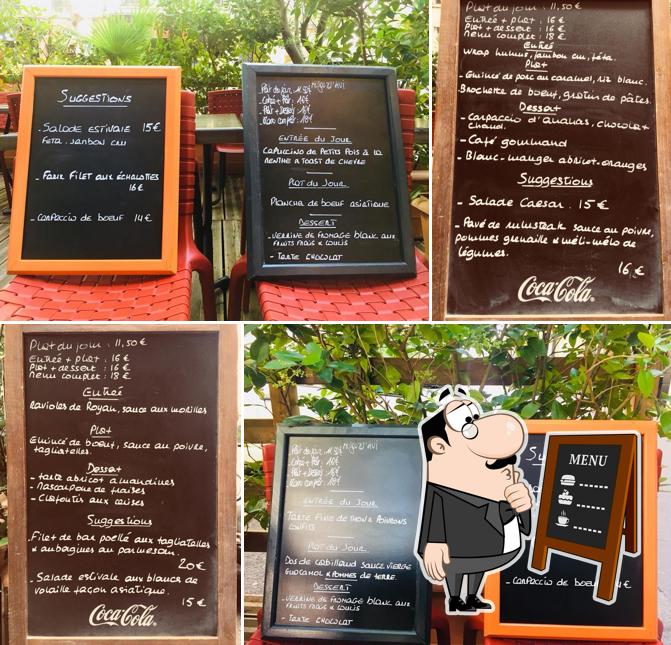 Suggestions
- Salade estivale 15€
Feta, Jambon cru
- Faux Filet aux échalottes
16€
- Carpaccio de boeuf 14€
Entrée du Jour
Capuccino de Petits Pois à la
menthe & Toast de Chèvre
Plat du Jour
Plancha de boeuf asiatique
Dessert
- Verrine de fromage blanc aux
fruits frais & coulis
- Tarte chocolat
Plat du jour : 11,50€
Entrée + plat : 16€
Plat + dessert : 16€
Menu complet : 18€
Entrée
Wrap humus, jambon cru, féta.
Plat
- Emincé de porc au caramel, riz blanc.
Brochette de boeuf, gratin de pâtes.
Dessert
- Carpaccio d'ananas, chocolat
chaud.
- Café gourmand
- Blanc-manger abricot-oranges
Suggestions
- Salade Caesar. 15€
- Pavé de rumsteak sauce au poivre,
pommes grenaille & méli-mélo de
légumes.
16€
Coca-Cola
Plat du jour : 11,50€
Entrée + plat : 16€
Plat + dessert : 16€
Menu complet : 18€
Entrée
Ravioles de Royan, sauce aux morilles
Plat
Emincé de boeuf, sauce au poivre,
tagliatelles.
Dessert
- Tarte abricot amandines
- Mascarpone de fraises
- Clafoutis aux cerises
Suggestions
- Filet de bar poellé aux tagliatelles
& aubergines au parmesan.
20€
- Salade estivale aux blancs de
volaille façon asiatique.
15€
Coca-Cola
Entrée du Jour
Tarte fine de thon & poivrons
confits
Plat du Jour
Dos de cabillaud sauce vierge
guacamol & pommes de terre.
Dessert
- Verrine de fromage blanc aux
fruits frais & coulis
- Tarte chocolat
Su
- Carpaccio de boeu 4€
MENU